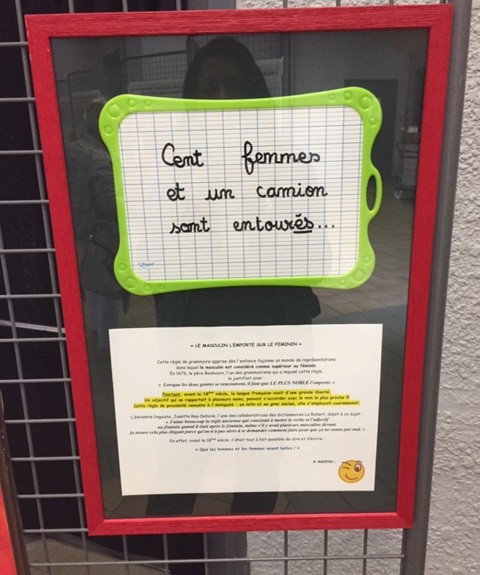 Cent femmes
et un camion
sont entourés...
« LE MASCULIN L'EMPORTE SUR LE FEMININ »
Cette règle de grammaire apprise dès l'enfance façonne un monde de représentations
dans lequel le masculin est considéré comme supérieur au féminin.
En 1676, le père Bouhours, l'un des grammairiens qui a imposé cette règle,
la justifiait ainsi :
« Lorsque les deux genres se rencontrent, il faut que LE PLUS NOBLE l'emporte. »
Pourtant, avant le 18ème siècle, la langue française usait d'une grande liberté.
Un adjectif qui se rapportait à plusieurs noms, pouvait s'accorder avec le nom le plus proche !!
Cette règle de proximité remonte à l'Antiquité : en latin et en grec ancien, elle s'employait couramment.
L'étonnante linguiste, Josette Rey-Debove, l'une des collaboratrices des dictionnaires Le Robert, disait à ce sujet :
« J'aime beaucoup la règle ancienne qui consistait à mettre le verbe et l'adjectif
au féminin quand il était après le féminin, même s'il y avait plusieurs masculins devant.
Je trouve cela plus élégant parce qu'on n'a pas alors à se demander comment faire pour que ça ne sonne pas mal. »
En effet, avant le 18ème siècle, il était tout à fait possible de dire et d'écrire :
« Que les hommes et les femmes soient belles ! »
A méditer...